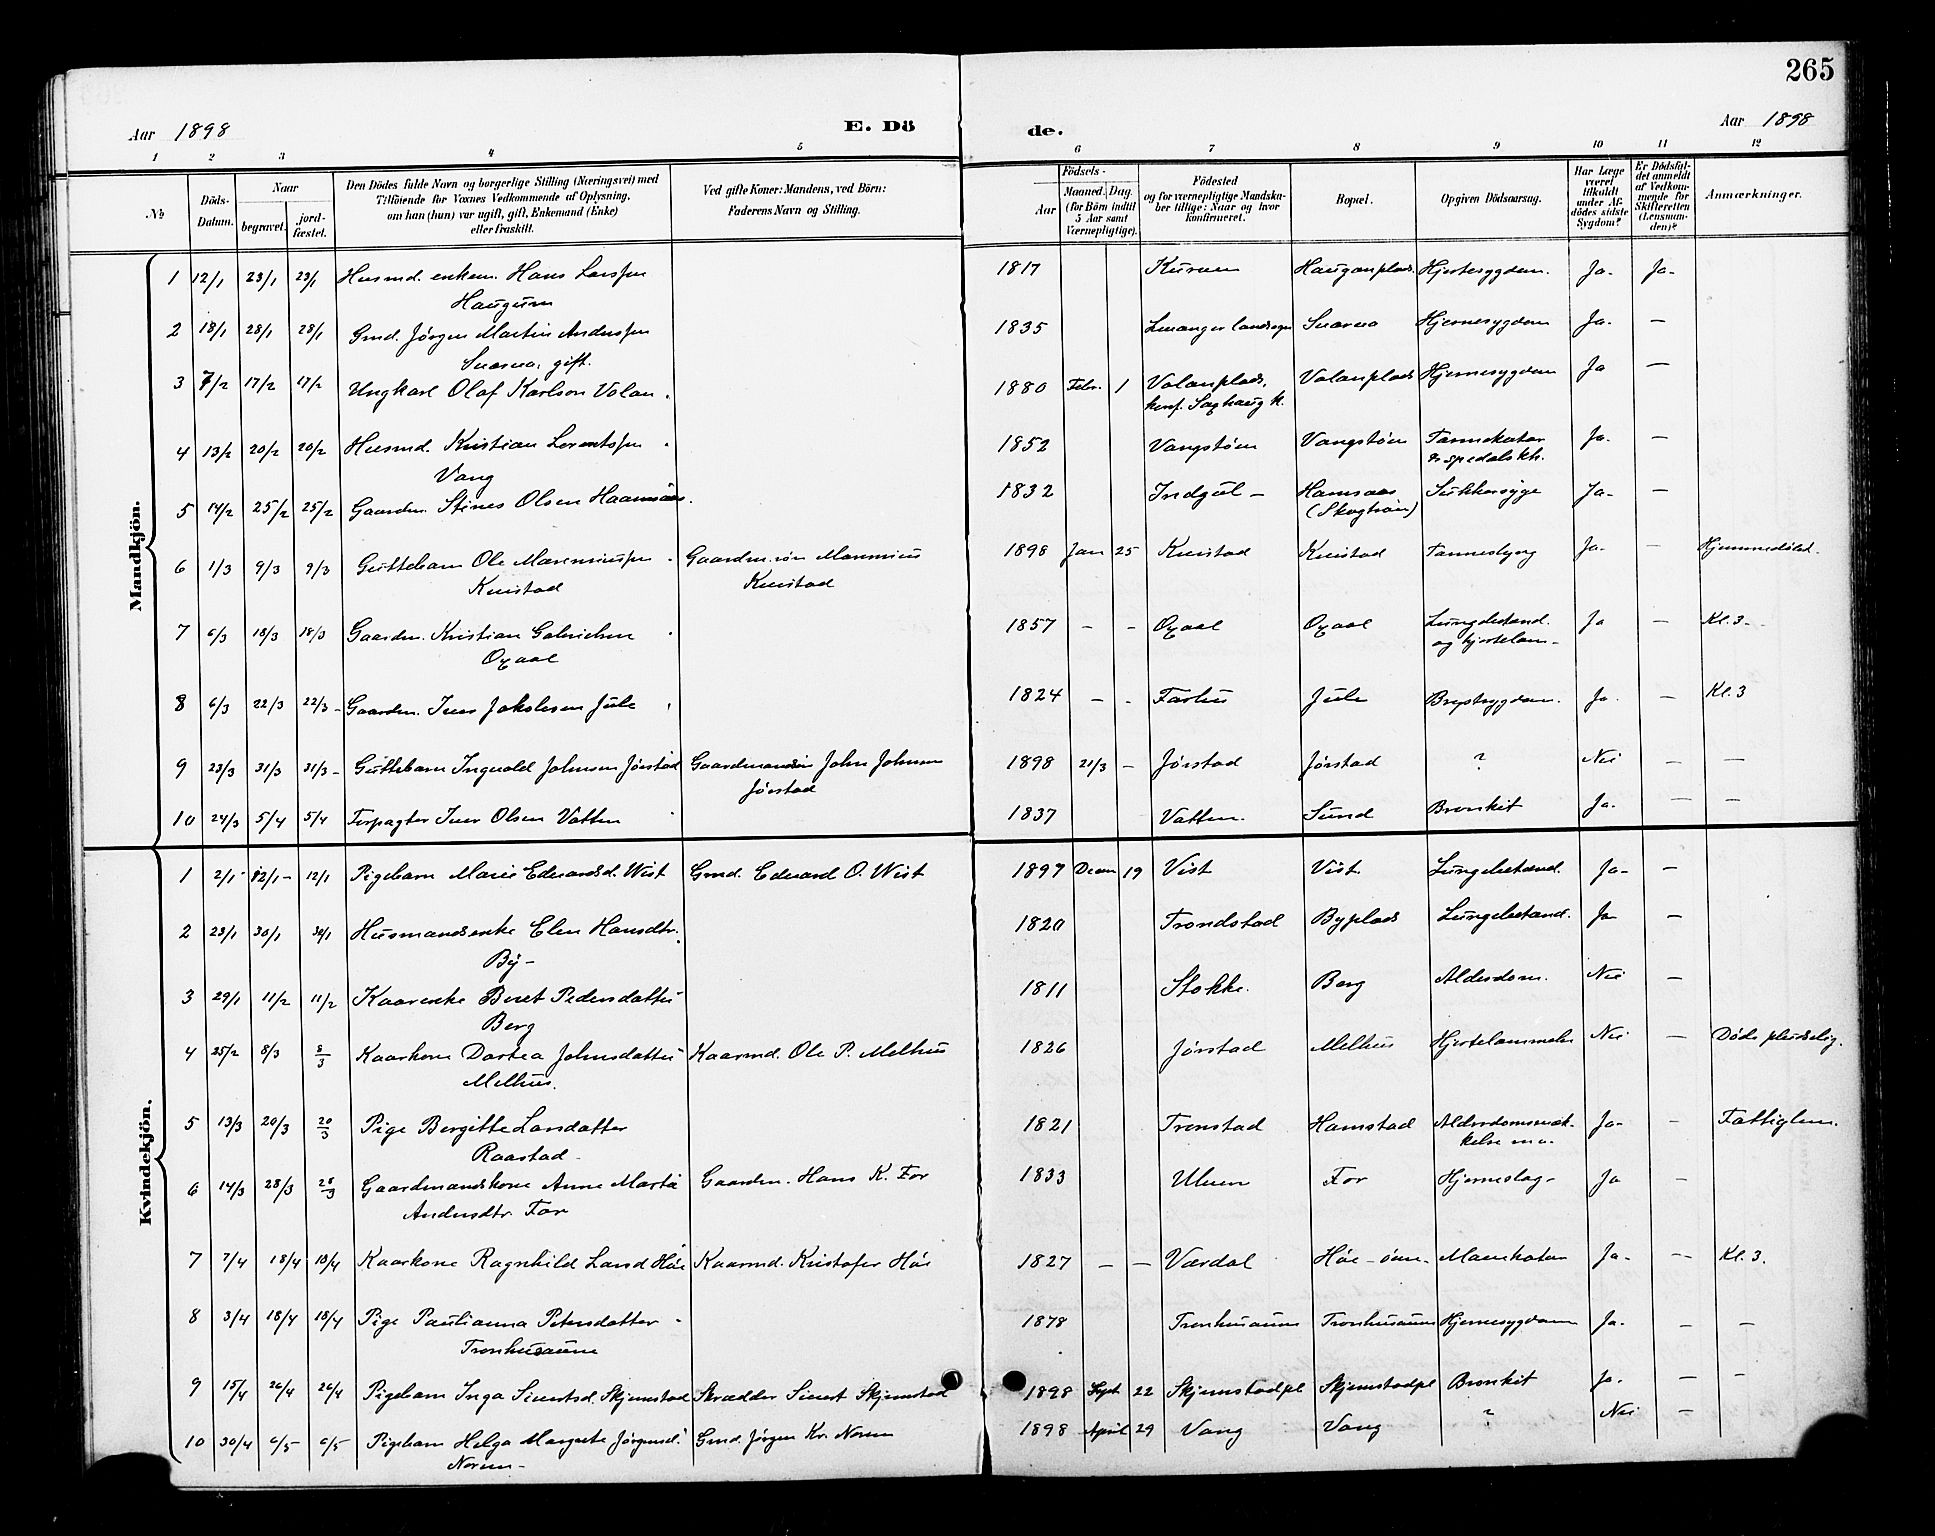 265
Aar 1898
E. Dö
de.
Aar 1898
1 2 3 4 5 6 7 8 9 10 11 12
No
Döds-Datum.
Naar
begravet.
jord-fæstet.
Den Dödes fulde Navn og borgerlige Stilling (Næringsvei) med
Tilföiende for Voxnes Vedkommende af Oplysning,
om han (hun) var ugift, gift, Enkemand (Enke)
eller fraskilt.
Ved gifte Koner: Mandens, ved Börn:
Faderens Navn og Stilling.
Födsels-
Aar
Maaned. Dag.
(for Börn indtil
5 Aar samt
Værnepligtige).
Födested
og for værnepligtige Mandska-
ber tillige: Naar og hvor
konfirmeret.
Bopæl.
Opgiven Dödsaarsag.
Har Læge
været
tilkaldt
under Af-
dödes sidste
Sygdom?
Er Dödsfal-
det anmeldt
af Vedkom-
mende for
Skifteretten
(Lensman-
den)?
Anmærkninger.
Mandkjön.
1 12/1 23/1 23/1 Husmd. enkem. Hans Larssen 1817 Hauganplads. Hjertesygdom. Ja- Ja-
Haugum
2 18/1 28/1 28/1 Gmd. Jørgen Martin Anderssen 1835 Hjernesygdom Ja. —
gift.
3 7/2 17/2 17/2 Ungkarl Olaf Karlson Valan. 1880 Febr. 1 Valanplads, Valanplads Hjernesygdom Ja —
konf.
4 13/2 20/2 20/2 Husmd. Kristian Lorentssen 1852 Vangstøen Vangstøen Tarmekatar Ja. —
Vang spedalskh.
5 14/2 25/2 25/2 Gaardm. Stines Olsen 1832 Indgul — Hamsaas Sukkersyge Ja- —
6 1/3 9/3 9/3 Guttebarn Ole Gaardm.søn 1898 Jan 25 Ja- — Hjemmedøbt.
7 6/3 18/3 18/3 Gaardm. Kristian 1857 - - Oxaal Oxaal Lungebetænd. Ja — Kl. 3-
Oxaal
8 6/3 22/3 22/3- Gaardm. Iver Jakobsen Jule 1824 — - Jule Brystsygdom. Ja. — Kl. 3
9 23/3 31/3 31/3- Guttebarn Ingvald Johnsen Jørstad Gaardmandsøn John Johnsen 1898 21/3 — Jørstad Jørstad ? Nei — —
Jørstad
10 24/3 5/4 5/4 Forpagter Iver Olsen Vatten 1837 Vatten. Sund Bronkit Ja. — —
Kvindekjön.
1 2/1- 12/1- 12/1 Pigebarn Marie Edvardsd. Wist Gmd. Edvard O. Wist 1897 Decem 19 Vist Vist. Lungebetænd. Ja- —
2 23/1 30/1 30/1 Husmandsenke Elen Hansdtr. 1820 Trondstad Byplads Lungebetænd. Ja —
By-
3 29/1 11/2 11/2 Kaarenke Beret Pedersdatter 1811 Stokke. Berg Alderdom. Nei —
Berg
4 25/2 8/3 8/3 Kaarkone Dortea Johnsdatter Kaarmd. Ole P. Melhus 1826 Jørstad Melhus Hjertelammelse Nei — Døde pludselig.
Melhus.
5 13/3 20/3 20/3 Pige Bergitte Larsdatter 1821 Tronstad Hamstad Ja- - Fattiglem.
Raastad-
6 14/3 28/3 28/3 Gaardmandskone Anne Marta Gaardm. Hans K. For 1833 Ulven For Hjerneslag- Ja -
Andersdtr. For
7 7/4 18/4 18/4 Kaarkone Ragnhild Larsd Høe Kaarmd. Kristofer Høe 1827 — — Værdal Mavekatar Ja- — Kl. 3.
8 3/4 18/4 18/4 Pige Paulianna Petersdatter 1878 Tronhusaune Tronhusaune Hjernesygdom Ja. — —
Tronhusaune
9 15/4 26/4 26/4 Pigebarn Inga Sivertsd. Skjemstad Skrædder Sivert Skjemstad 1898 Sept 22 Skjemstadpl Skjemstadpl Bronkit Ja. — —
10 30/4 6/5 6/5 Pigebarn Helga Margrete Jørgensd. Gmd. Jørgen Kr. Norum 1898 April 29 Vang Vang ? Nei —
Norum-